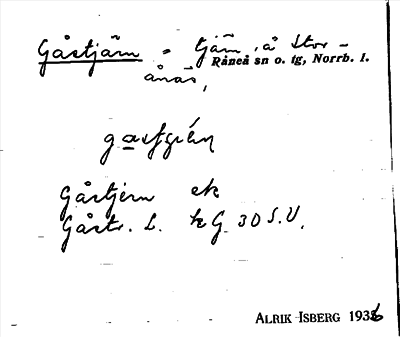 Gåstjärn = tjärn å Stor-
Råneå sn o. tg, Norrb. l.
ånäs,
Gåstjern ek
Gåstr. L. kG 30 S.V.
ALRIK ISBERG 1936